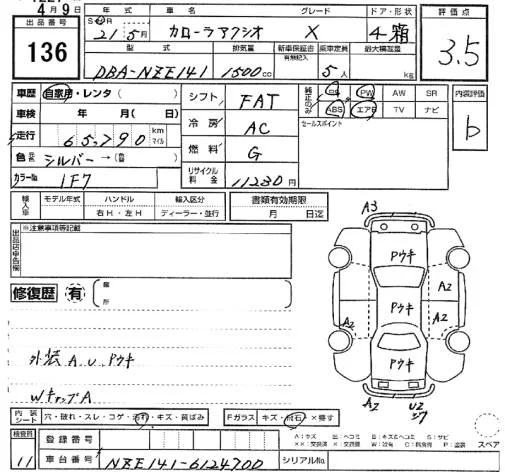 4月9日
出品番号
136
年式 車名 グレード ドア・形状
S H 21年5月 カローラアクシオ X 4-箱
評価点
3.5
型式 排気量 新車保証書 乗車定員 最大積載量
有無記入
DBA-NZE141 1500cc 5人 kg
車歴 自家用・レンタ( )
車検 年 月(日)
走行 65790 km マイル
色 シルバー→(色)
カラーNo 1F7
シフト FAT
冷房 AC
燃料 G
リサイクル料金 11230円
純正のみ
PS PW AW SR
ABS エアB TV ナビ
セールスポイント
内装評価
b
輸入車
モデル年式 ハンドル 輸入区分
右H・左H ディーラー・並行
書類有効期限
月 日迄
出品店申告欄
※注意事項等記載
修復歴 有
箇所
外装 A.U.Pウキ
WキャップA
A3
Pウキ
A2
Pウキ
A2
A2
Pウキ
A2 U2
内装シート 穴・破れ・スレ・コゲ・汚れ・キズ・黄ばみ
Fガラス キズ・飛石・×要す
A:キズ U:ヘコミ B:キズ&ヘコミ S:サビ
スペア
検査員
11
登録番号
車台番号 NZE141-6124700
シリアルNo.